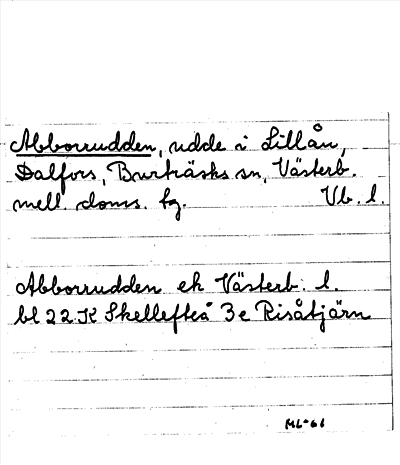 Abborrudden, udde i Lillån,
Dalfors, Burträsks sn, Västerb.
mell. doms. tg. Vb. l.
Abborrudden ek Västerb. l.
bl 22 K Skellefteå 3 e Risåtjärn
ML-61